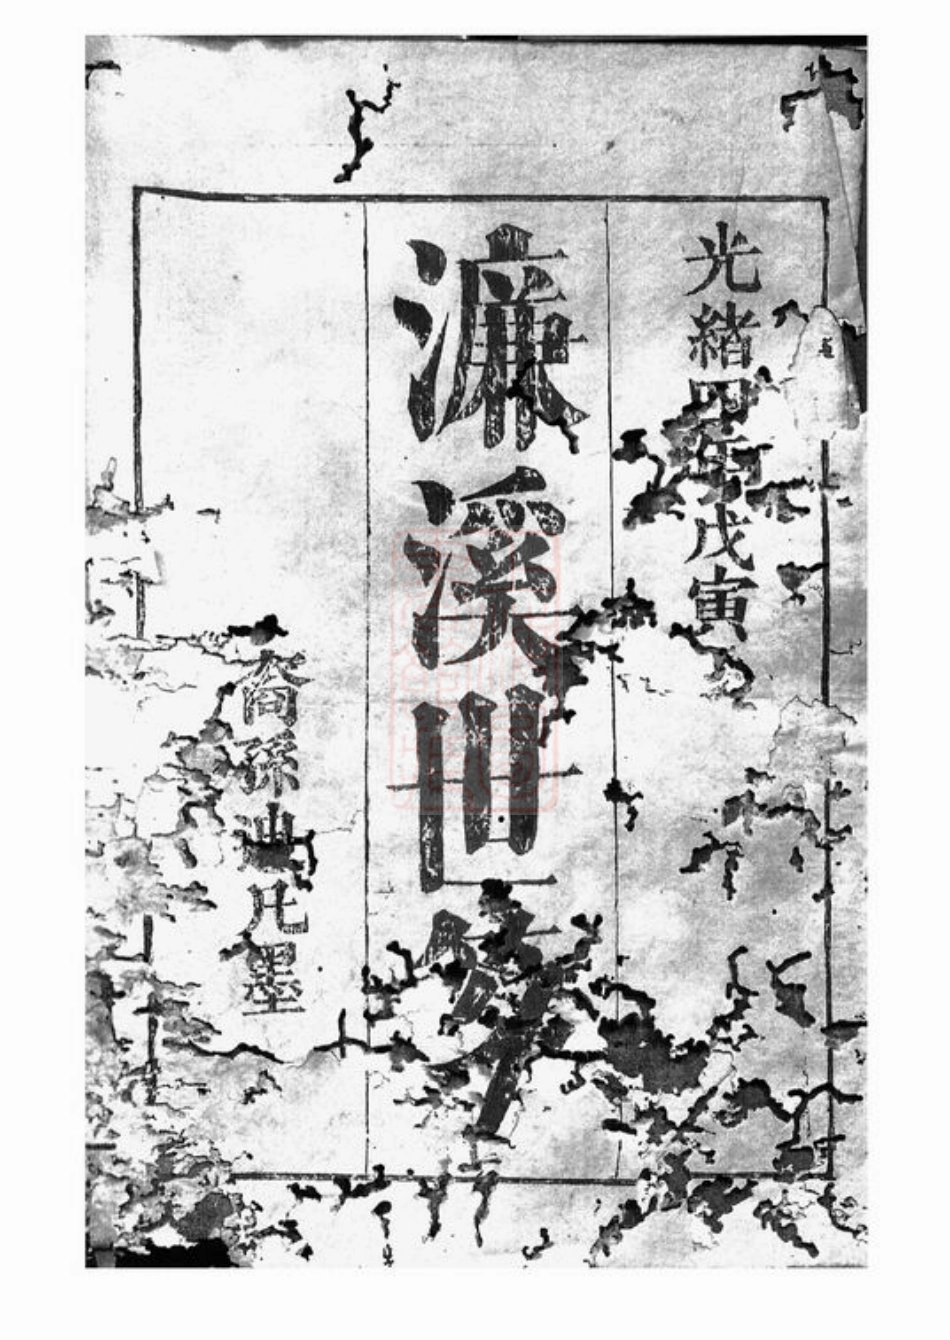 光緒四年戊寅
濂溪世
裔孫 凡墨